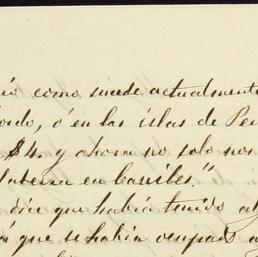 como sucede actualmente
ó en las islas de
$4. y ahora no solo nos
en barriles."
dice que habia tenido
que se habia ocupado